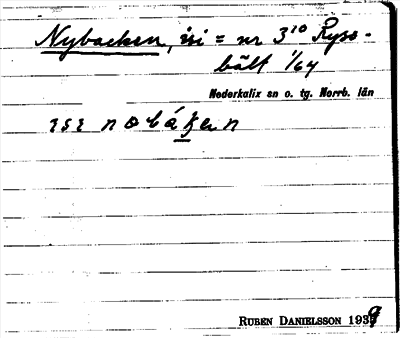 Nybacken, isi = nr 3¹⁰ Ryss-
bält 1/64
Nederkalix sn o. tg. Norrb. län
RUBEN DANIELSSON 1939